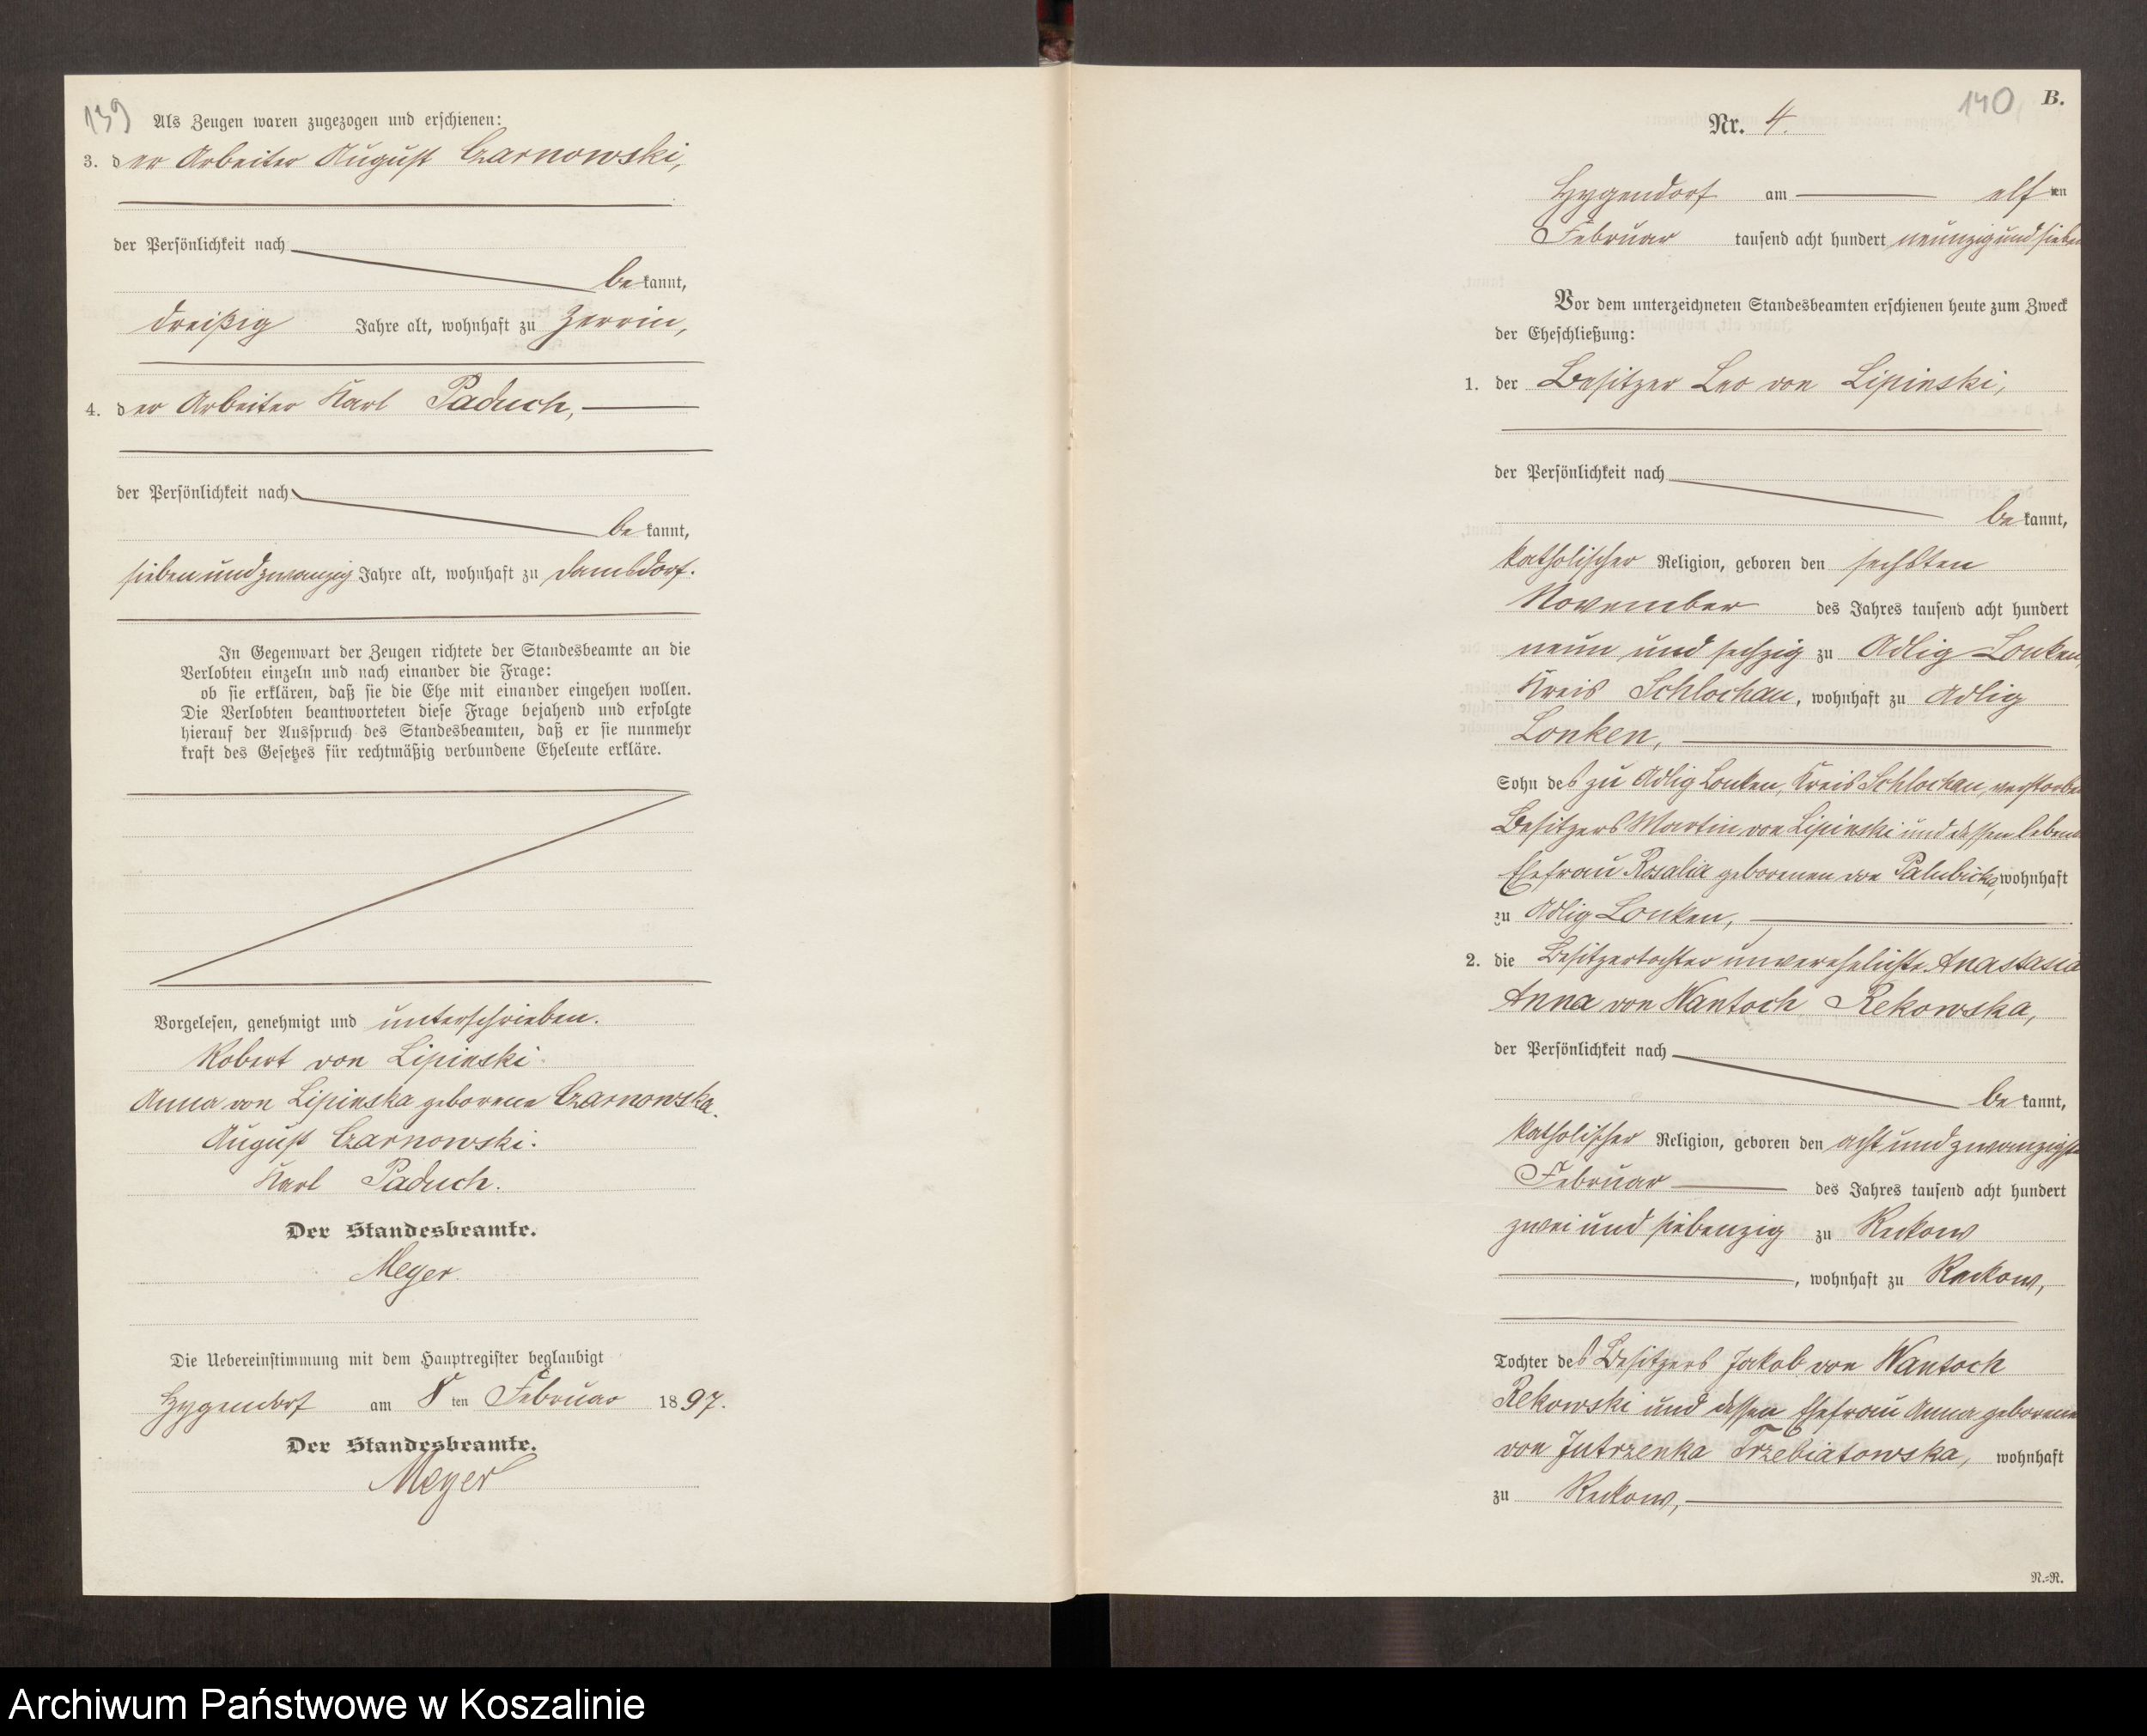 139
Als Zeugen waren zugezogen und erschienen:
3. der Arbeiter August Czarnowski,
der Persönlichkeit nach
bekannt,
dreißig Jahre alt, wohnhaft zu Zerrin,
4. der Arbeiter Karl Paduch,
der Persönlichkeit nach
bekannt,
siebenundzwanzig Jahre alt, wohnhaft zu Damsdorf.
In Gegenwart der Zeugen richtete der Standesbeamte an die
Verlobten einzeln und nach einander die Frage:
ob sie erklären, daß sie die Ehe mit einander eingehen wollen.
Die Verlobten beantworteten diese Frage bejahend und erfolgte
hierauf der Ausspruch des Standesbeamten, daß er sie nunmehr
kraft des Gesetzes für rechtmäßig verbundene Eheleute erkläre.
Vorgelesen, genehmigt und unterschrieben.
Robert von Lipinski.
Anna von Lipinska geborene Czarnowska.
August Czarnowski.
Karl Paduch.
Der Standesbeamte.
Meyer.
Die Uebereinstimmung mit dem Hauptregister beglaubigt
Hygendorf am 8ten Februar 1897.
Der Standesbeamte.
Meyer
140 B.
Nr. 4.
Hygendorf am elften
Februar tausend acht hundert neunzigundsieben
Vor dem unterzeichneten Standesbeamten erschienen heute zum Zweck
der Eheschließung:
1. der Besitzer Leo von Lipinski,
der Persönlichkeit nach
bekannt,
katholischer Religion, geboren den sechsten
November des Jahres tausend acht hundert
neun und sechzig zu Adlig Lonken,
Kreis Schlochau, wohnhaft zu Adlig
Lonken,
Sohn des zu Adlig Lonken, Kreis Schlochau, verstorben
Besitzers Martin von Lipinski und dessen lebend
Ehefrau Rosalia geborenen von Palubicka, wohnhaft
zu Adlig Lonken,
2. die Besitzertochter unverehelichte Anastasia
Anna von Wantoch Rekowska,
der Persönlichkeit nach
bekannt,
katholischer Religion, geboren den acht und zwanzigsten
Februar des Jahres tausend acht hundert
zwei und siebenzig zu Reckow
, wohnhaft zu Reckow,
Tochter des Besitzers Jakob von Wantoch
Rekowski und dessen Ehefrau Anna geborene
von Jutrzenka Trzebiatowska, wohnhaft
zu Reckow,
N.=R.
Archiwum Państwowe w Koszalinie